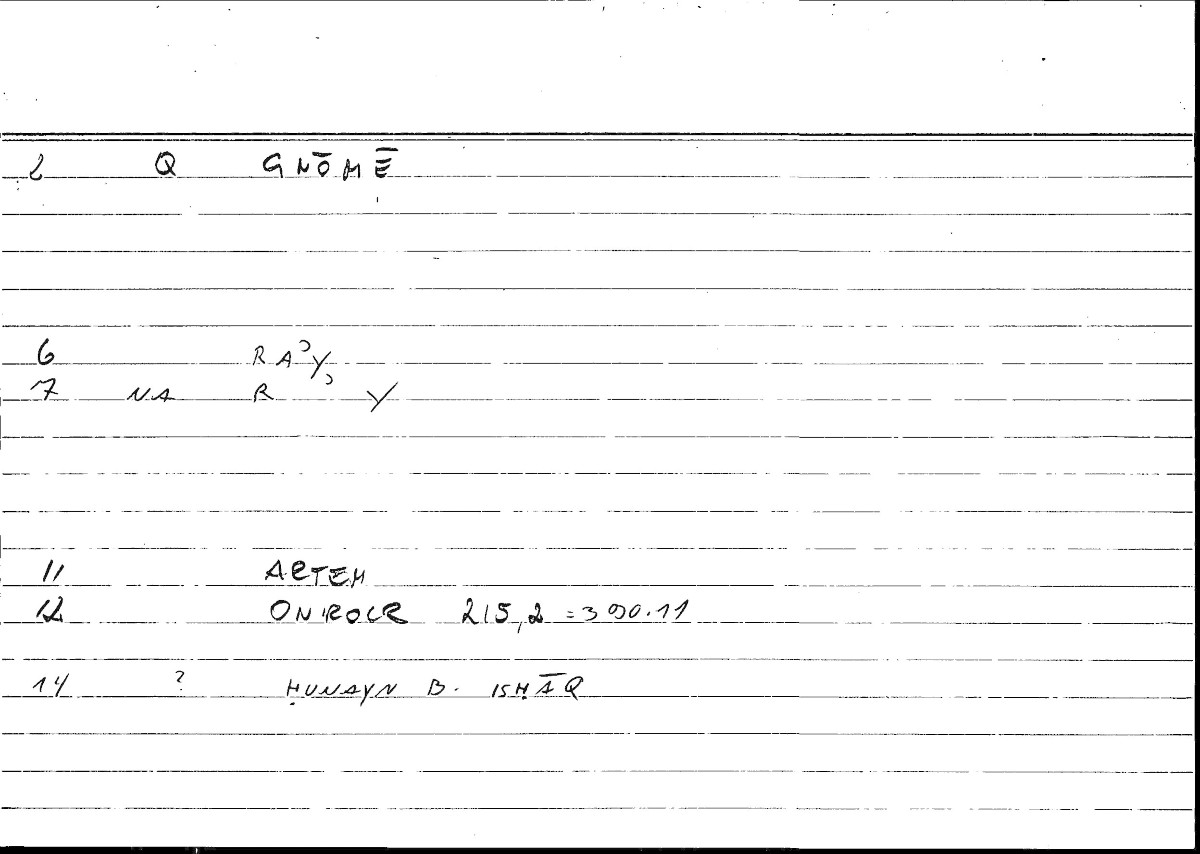 2 Q GNŌMĒ
6 RAʾY,
7 NA R Y
11 ARTEM
12 ONIROCR 215,2 = 390.11
14 ? ḤUNAYN B. ISḤĀQ